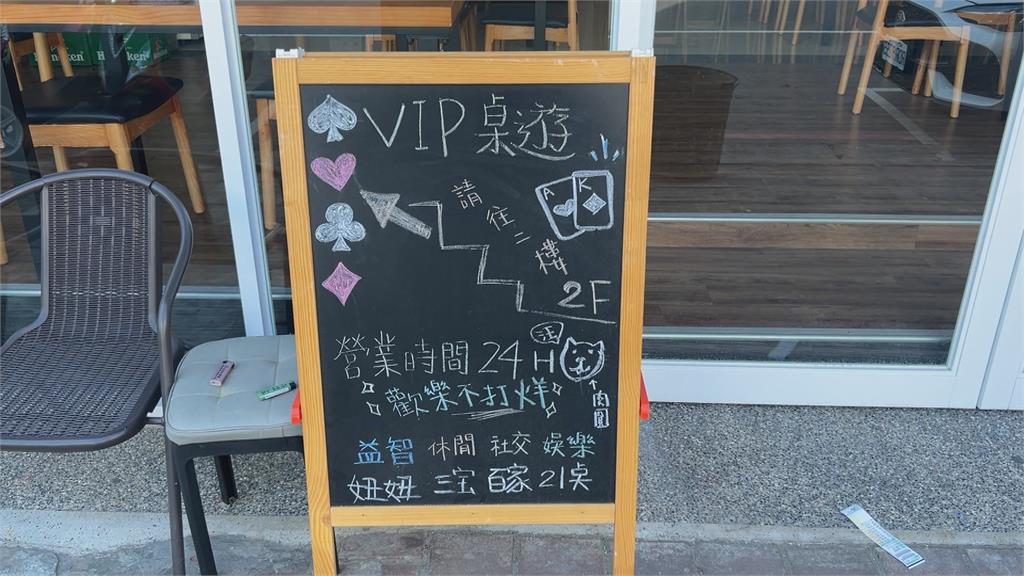 VIP桌遊
請往二樓
A K
2F
營業時間24H
汪
歡樂不打烊
肉圓
益智 休閒 社交 娛樂
妞妞 三宝 百家 21点